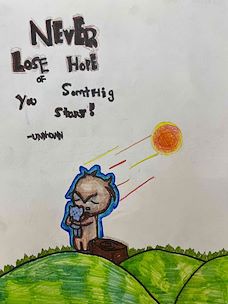 NEVER
LOSE HOPE
OF
You Somthig
Start!
-UNKNOWN